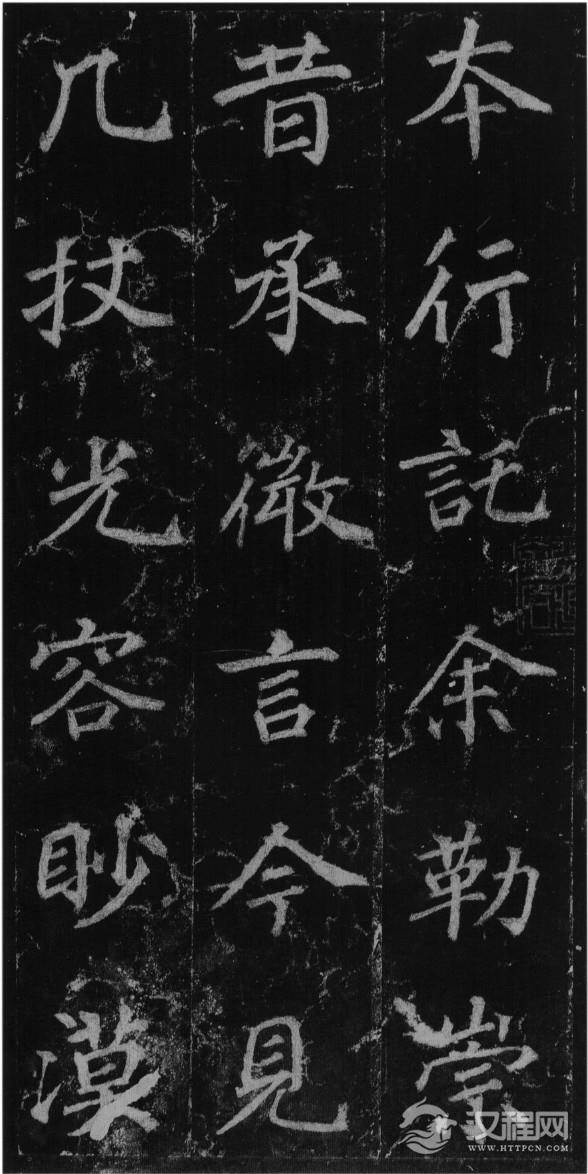 本行託余勒崇
昔承微言今見
几杖光容眇漠
汉程网
WWW.HTTPCN.COM